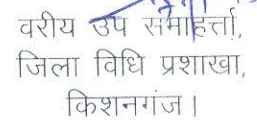 वरीय उप समाहर्त्ता,
जिला विधि प्रशाखा,
किशनगंज।